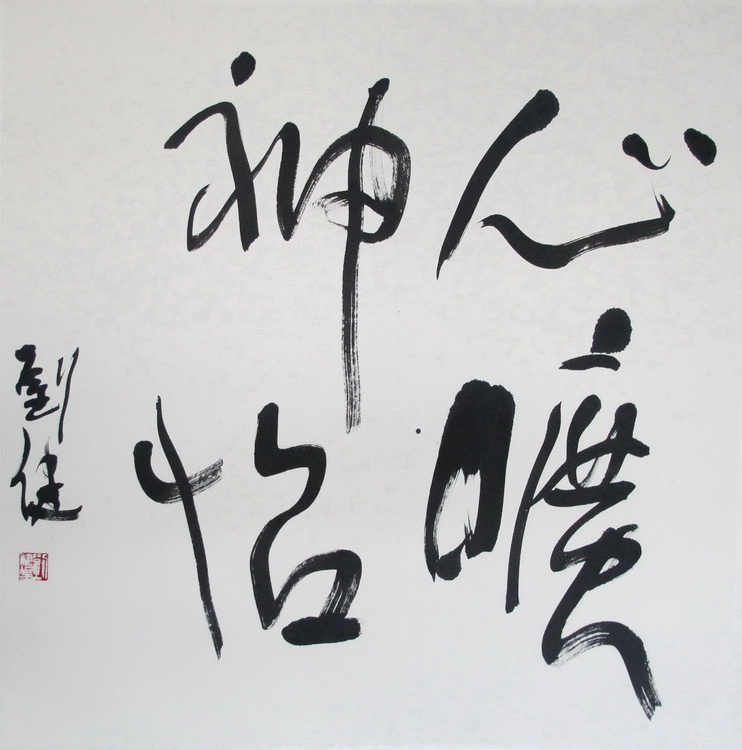 心曠
神怡
劉健